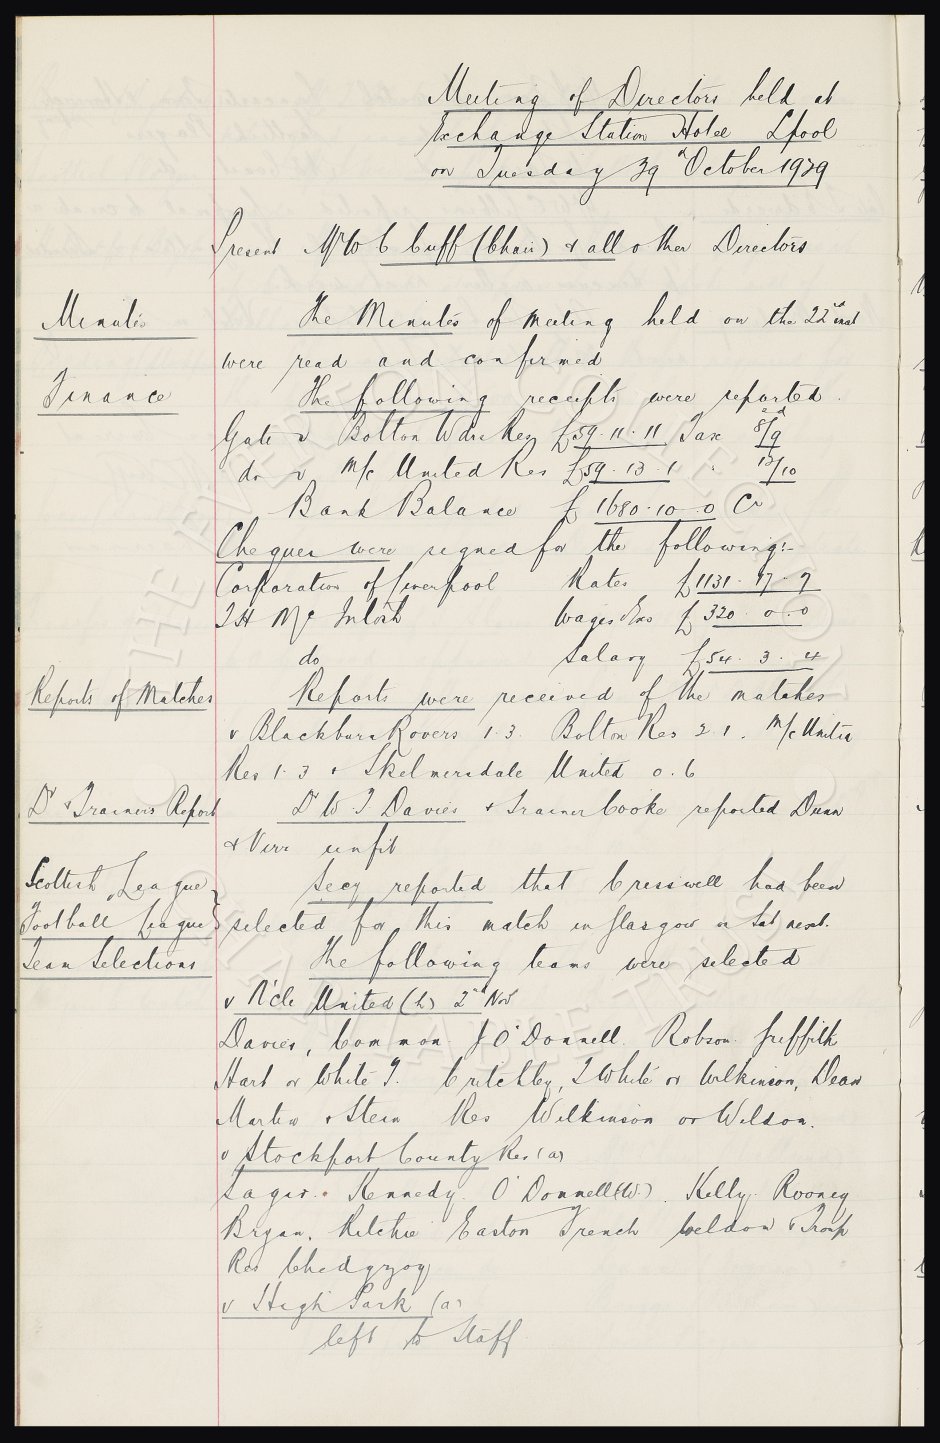 Meeting of Directors held at
Exchange Station Hotel Lpool
on Tuesday 29th October 1929
Present Mr W C Cuff (Chair) & all other Directors
Minutes
The Minutes of meeting held on the 22nd inst
were read and confirmed
Finance
The following receipts were reported.
Gate v Bolton Wdrs Res £59.11.11 Tax 8/9
do v M/c United Res £59.13.1 " 13/10
Bank Balance £1680.10.0 Cr
Cheques were signed for the following:-
Corporation of Liverpool Rates £1131.17.9
T H Mc Intosh Wages &c £320.0.0
do Salary £54.3.4
Reports of Matches
Reports were received of the matches
v Blackburn Rovers 1.3. Bolton Res 2.1. M/c United
Res 1.3 & Skelmersdale United 0.6
Dr & Trainers Report
Dr W J Davies & Trainer Cooke reported Dunn
& Virr unfit
Scottish League
v Football League
Secy reported that Cresswell had been
selected for this match in Glasgow on Sat next.
Team Selections
The following teams were selected
v N'cle United (h) 2nd Novr
Davies, Common J O'Donnell. Robson. Griffith
Hart or White T. Critchley, T White or Wilkinson, Dean
Martin & Stein Res Wilkinson or Weldon.
v Stockport County Res (a)
Sagar. Kennedy. O'Donnell (W). Kelly. Rooney
Bryan. Ritchie Easton French Weldon & Troup
Res Chedgzoy
v High Park (a)
left to Staff